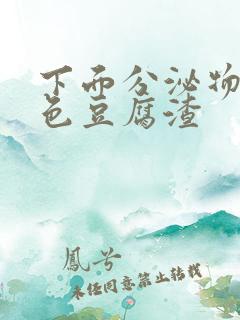 下面分泌物
色豆腐渣
鳳兮
未经同意禁止转载